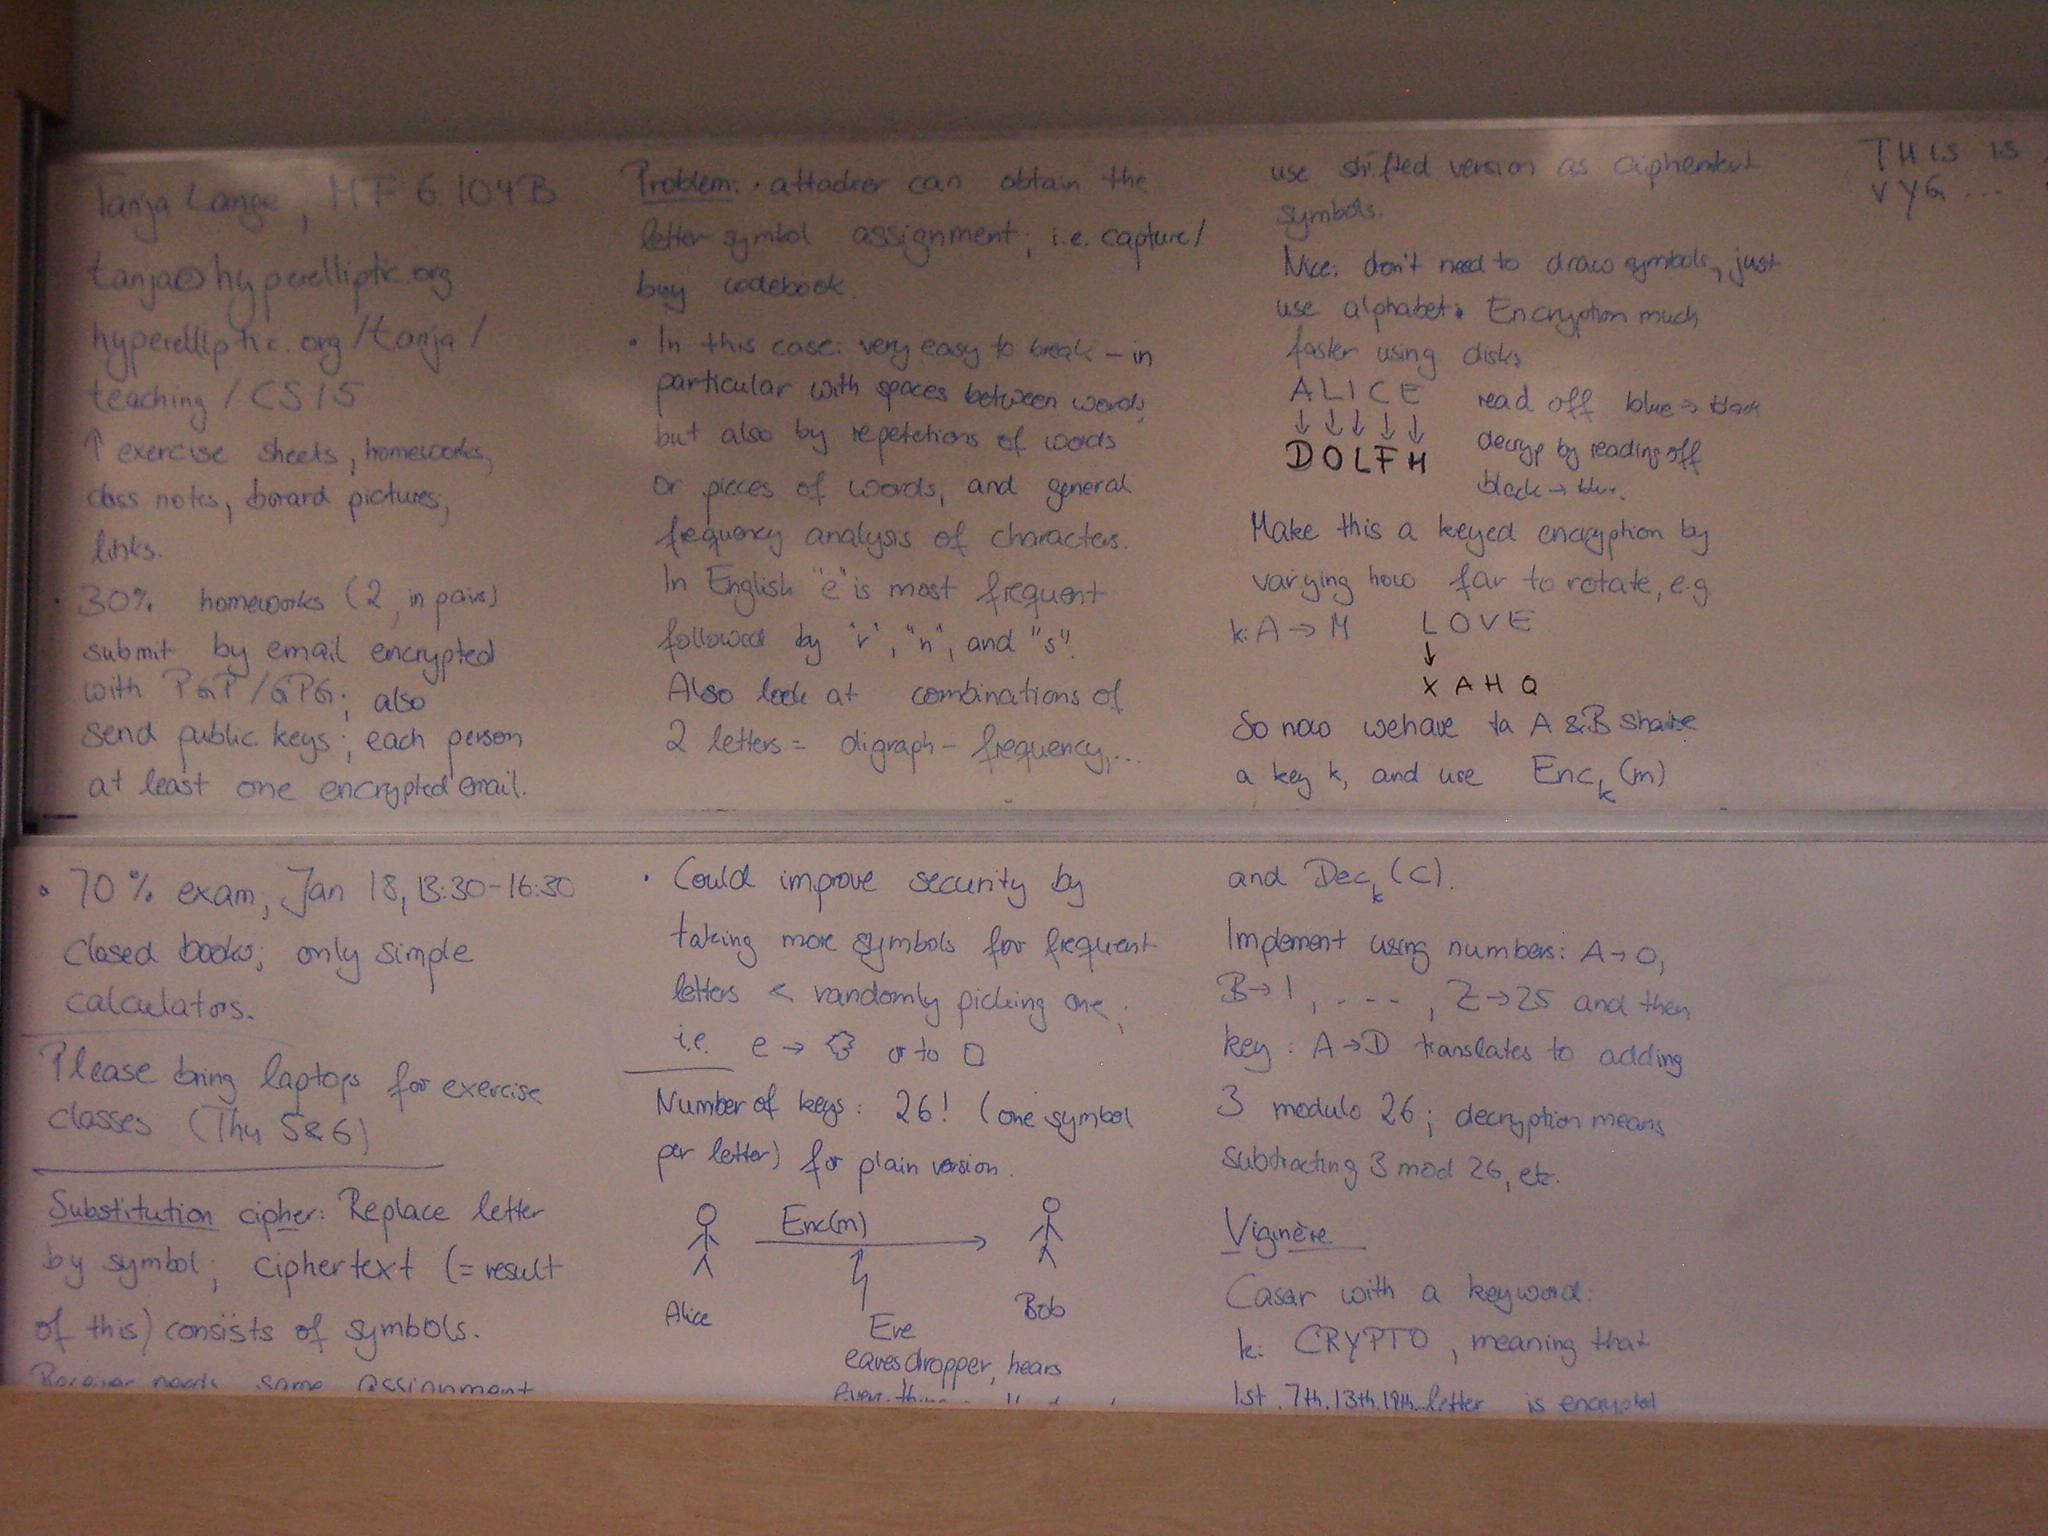 Tanja Lange, MF 6.104B
tanja@hyperelliptic.org
hyperelliptic.org/tanja/
teaching/CS15
↑ exercise sheets, homeworks,
class notes, borard pictures,
links.
· 30% homeworks (2, in pairs)
submit by email encrypted
with PGP/GPG; also
send public keys; each person
at least one encrypted email.
• 70% exam, Jan 18, 13:30-16:30
closed books; only simple
calculators.
Please bring laptops for exercise
classes (Thu 5&6)
Substitution cipher: Replace letter
by symbol; ciphertext (= result
of this) consists of symbols.
Receiver needs same assignment
Problem: · attacker can obtain the
letter symbol assignment; i.e. capture/
buy codebook.
• In this case: very easy to break – in
particular with spaces between words
but also by repetetions of words
or pieces of words, and general
frequency analysis of characters.
In English "e" is most frequent
followed by "r", "n", and "s".
Also look at combinations of
2 letters = digraph – frequency,...
· Could improve security by
taking more symbols for frequent
letters & randomly picking one;
i.e. e → or to □
Number of keys: 26! (one symbol
per letter) for plain version.
Enc(m)
Alice
Bob
Eve
eavesdropper, hears
everything
use shifted version as ciphertext
symbols.
Nice: don't need to draw symbols, just
use alphabet. Encryption much
faster using disks
A L I C E
↓ ↓ ↓ ↓ ↓
D O L F H
read off blue → black
decryp by reading off
black → blue.
Make this a keyed encryption by
varying how far to rotate, e.g.
k: A → M L O V E
↓
X A H Q
So now we have to A & B share
a key k, and use Enc_k(m)
and Dec_k(c).
Implement using numbers: A→0,
B→1, ----, Z→25 and then
key: A→D translates to adding
3 modulo 26; decryption means
subtracting 3 mod 26, etc.
Viginère
Casar with a keyword:
k: CRYPTO, meaning that
1st, 7th, 13th, 19th...letter is encrypted
THIS IS
VYG ...